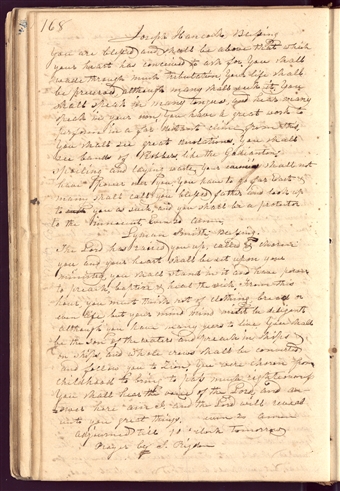 168
Joseph Hancock's Blessing
You are blessed and shall be above that which
your heart has conceived to ask for, You shall
wade through much tribulation, Your life shall
be preserved although many shall seek it, You
shall speak in many tongues, and hear many
speak in your own, You have a great work to
perform in a far distant clime from this,
You shall see great desolations, You shall
see bands of Robbers, like the Gadiantons
spoiling and laying waste, Your enemies shall not
have power over you, You
many shall call you blessed father and look up
to you as such, and you shall be a protector
to the Innocent, Even so Amen.
Lyman Smith's Blessing.
The Lord has raised you up, called & chosen
you and your heart shall be set upon your
ministry, you shall stand in it and have power
to preach, baptize & heal the sick, from this
hour you must think not of clothing bread or
even life, but your mind must be diligent
although you have many years to live You shall
be the son of the waters and preach in ships &
on ships, and whole crews shall be converted
and follow you to Zion, You were chosen from
childhood to bring to pass much righteousness
You shall hear the voice of the Lord, and an
and the Lord will reveal
unto you great things. even so Amen
adjourned till tomorrow
Prayer by S. Rigdon